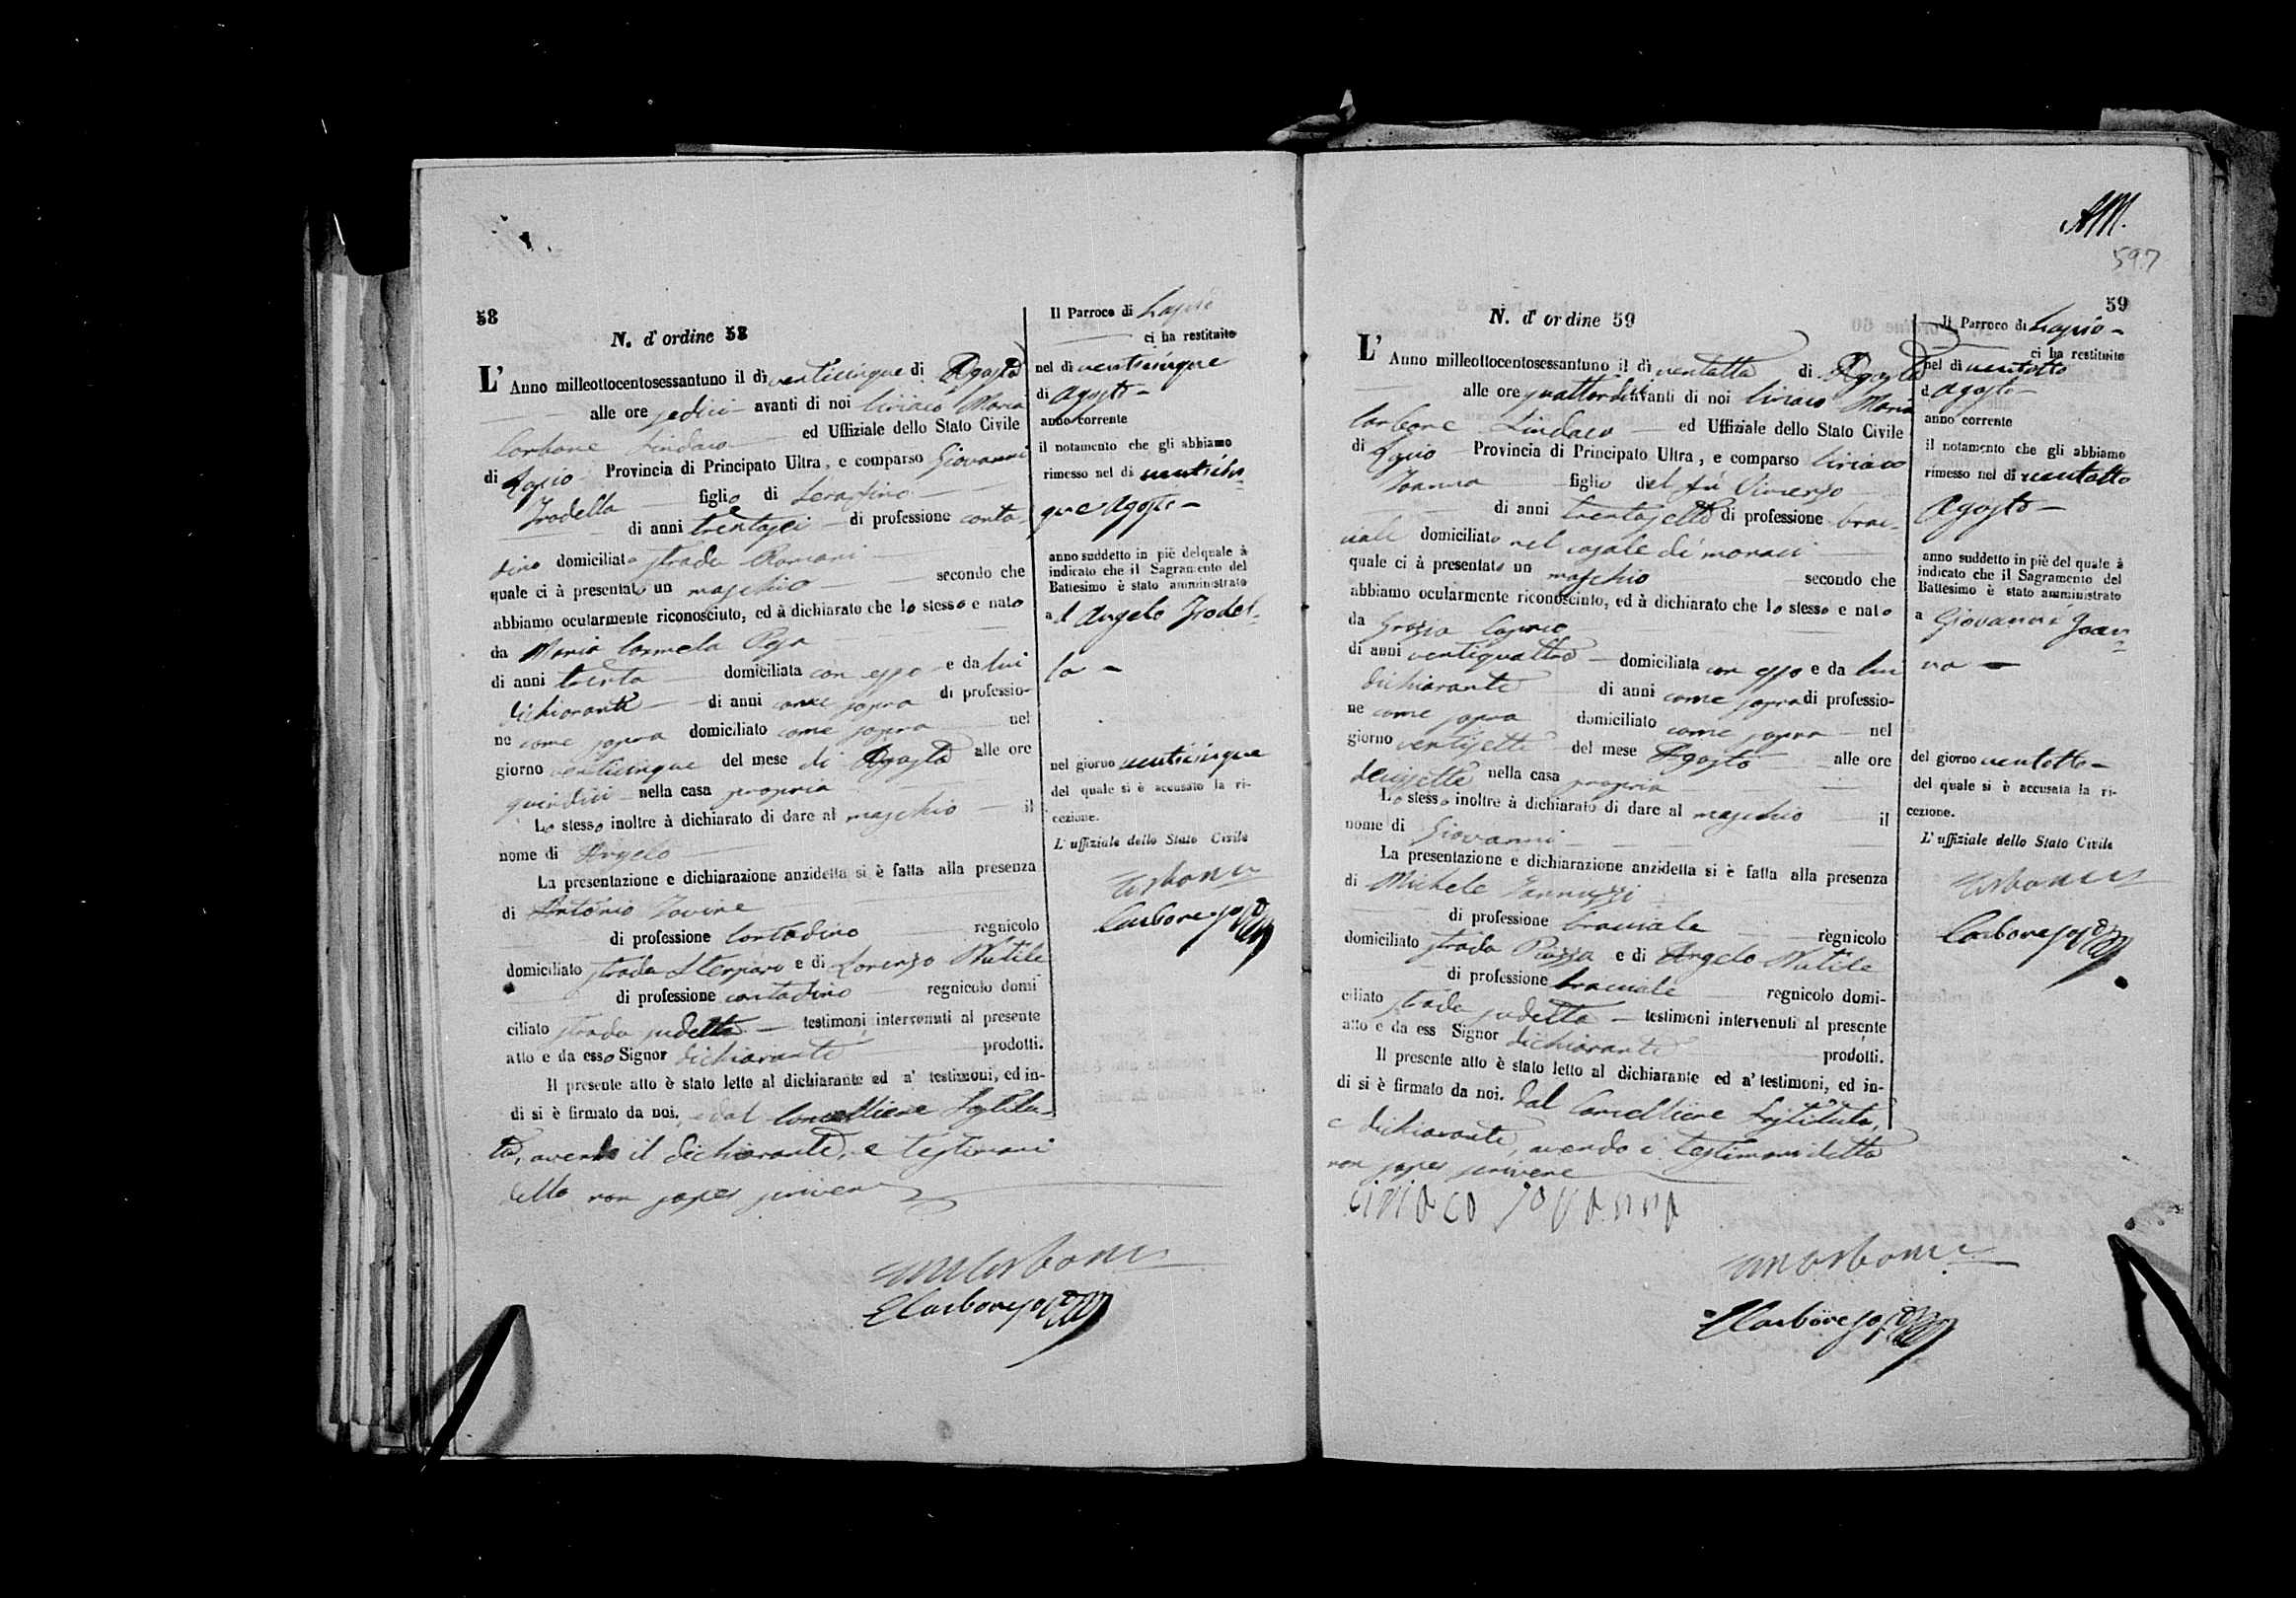 58
N. d'ordine 58
L' Anno milleottocentosessantuno il dì venticinque di Agosto
alle ore sedici avanti di noi Ciriaco Maria
Carbone Sindaco ed Uffiziale dello Stato Civile
di Lapio Provincia di Principato Ultra, e comparso Giovanni
Trodella figlio di Serafino
di anni trentasei di professione conta-
dino domiciliato strada Romani
quale ci à presentato un maschio secondo che
abbiamo ocularmente riconosciuto, ed à dichiarato che lo stesso e nato
da Maria Carmela Pepa
di anni trenta domiciliata con esso e da lui
dichiarante di anni come sopra di professio-
ne come sopra domiciliato come sopra nel
giorno venticinque del mese di Agosto alle ore
quindici nella casa propria
Lo stesso inoltre à dichiarato di dare al maschio il
nome di Angelo
La presentazione e dichiarazione anzidetta si è fatta alla presenza
di Antonio Iovine
di professione Contadino regnicolo
domiciliato strada e di Lorenzo Nutile
di professione contadino regnicolo domi-
ciliato strada sudetta testimoni intervenuti al presente
atto e da esso Signor dichiarante prodotti.
Il presente atto è stato letto al dichiarante ed a' testimoni, ed in-
di si è firmato da noi, e dal Cancelliere Sostitu-
to, avendo il dichiarante, e testimoni
detto non saper scrivere
CM Carbone
E Carbone Sost
Il Parroco di Lapio
ci ha restituito
nel dì venticinque
di Agosto
anno corrente
il notamento che gli abbiamo
rimesso nel di venticin-
que Agosto
anno suddetto in piè del quale à
indicato che il Sagramento del
Battesimo è stato amministrato
ad Angelo Trodel-
la
nel giorno venticinque
del quale si è accusato la ri-
cezione.
L'uffiziale dello Stato Civile
Carbone
Carbone Sost
597
59
N. d'ordine 59
L' Anno milleottocentosessantuno il dì ventotto di Agosto
alle ore quattordici avanti di noi Ciriaco Maria
Carbone Sindaco ed Uffiziale dello Stato Civile
di Lapio Provincia di Principato Ultra, e comparso Ciriaco
Ioanna figlio del fu Vincenzo
di anni trentasette di professione brac-
ciale domiciliato nel casale di monaci
quale ci à presentato un maschio secondo che
abbiamo ocularmente riconosciuto, ed à dichiarato che lo stesso e nato
da Grazia Caprio
di anni ventiquattro domiciliata con esso e da lui
dichiarante di anni come sopra di professio-
ne come sopra domiciliato come sopra nel
giorno ventisette del mese Agosto alle ore
diecissette nella casa propria
Lo stesso inoltre à dichiarato di dare al maschio il
nome di Giovanni
La presentazione e dichiarazione anzidetta si è fatta alla presenza
di Michele Iannuzzi
di professione bracciale regnicolo
domiciliato strada Piazza e di Angelo Nutile
di professione bracciale regnicolo domi-
ciliato strada sudetta testimoni intervenuti al presente
atto e da ess Signor dichiarante prodotti.
Il presente atto è stato letto al dichiarante ed a' testimoni, ed in-
di si è firmato da noi. dal Cancelliere Sostituto,
e dichiarante, avendo i testimoni detto
non saper scrivere
ciriaco Joanna
CM Carbone
E Carbone Sost
Il Parroco di Lapio
ci ha restituito
nel dì ventotto
d Agosto
anno corrente
il notamento che gli abbiamo
rimesso nel dì ventotto
Agosto
anno suddetto in piè del quale à
indicato che il Sagramento del
Battesimo è stato amministrato
a Giovanni Joan-
na
del giorno ventotto
del quale si è accusata la ri-
cezione.
L'uffiziale dello Stato Civile
Carbone
Carbone Sost